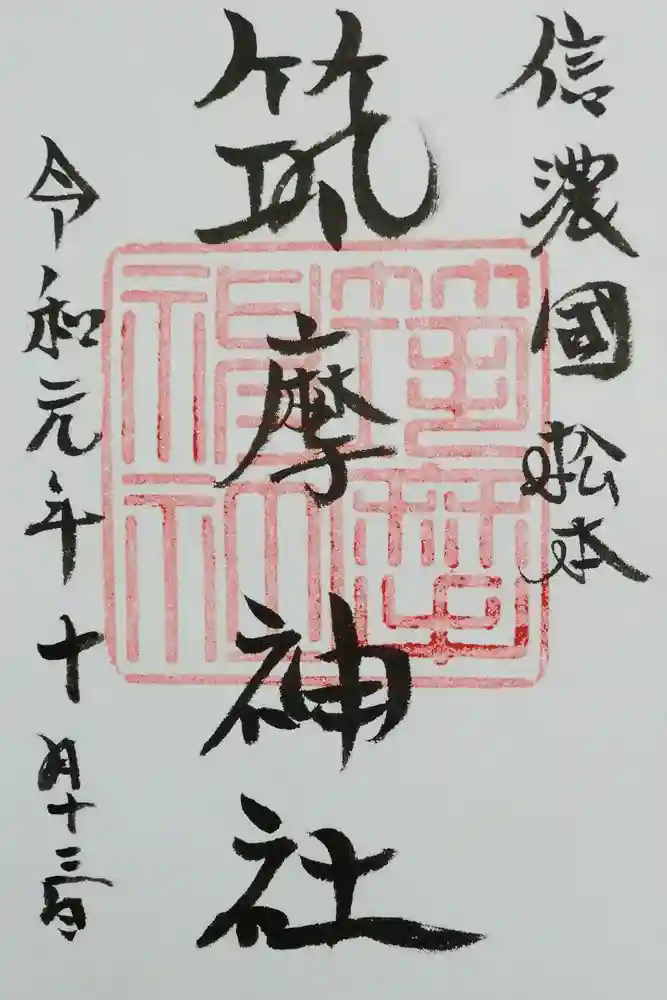 信濃國松本
筑摩神社
令和元年十月十三日
筑摩神社